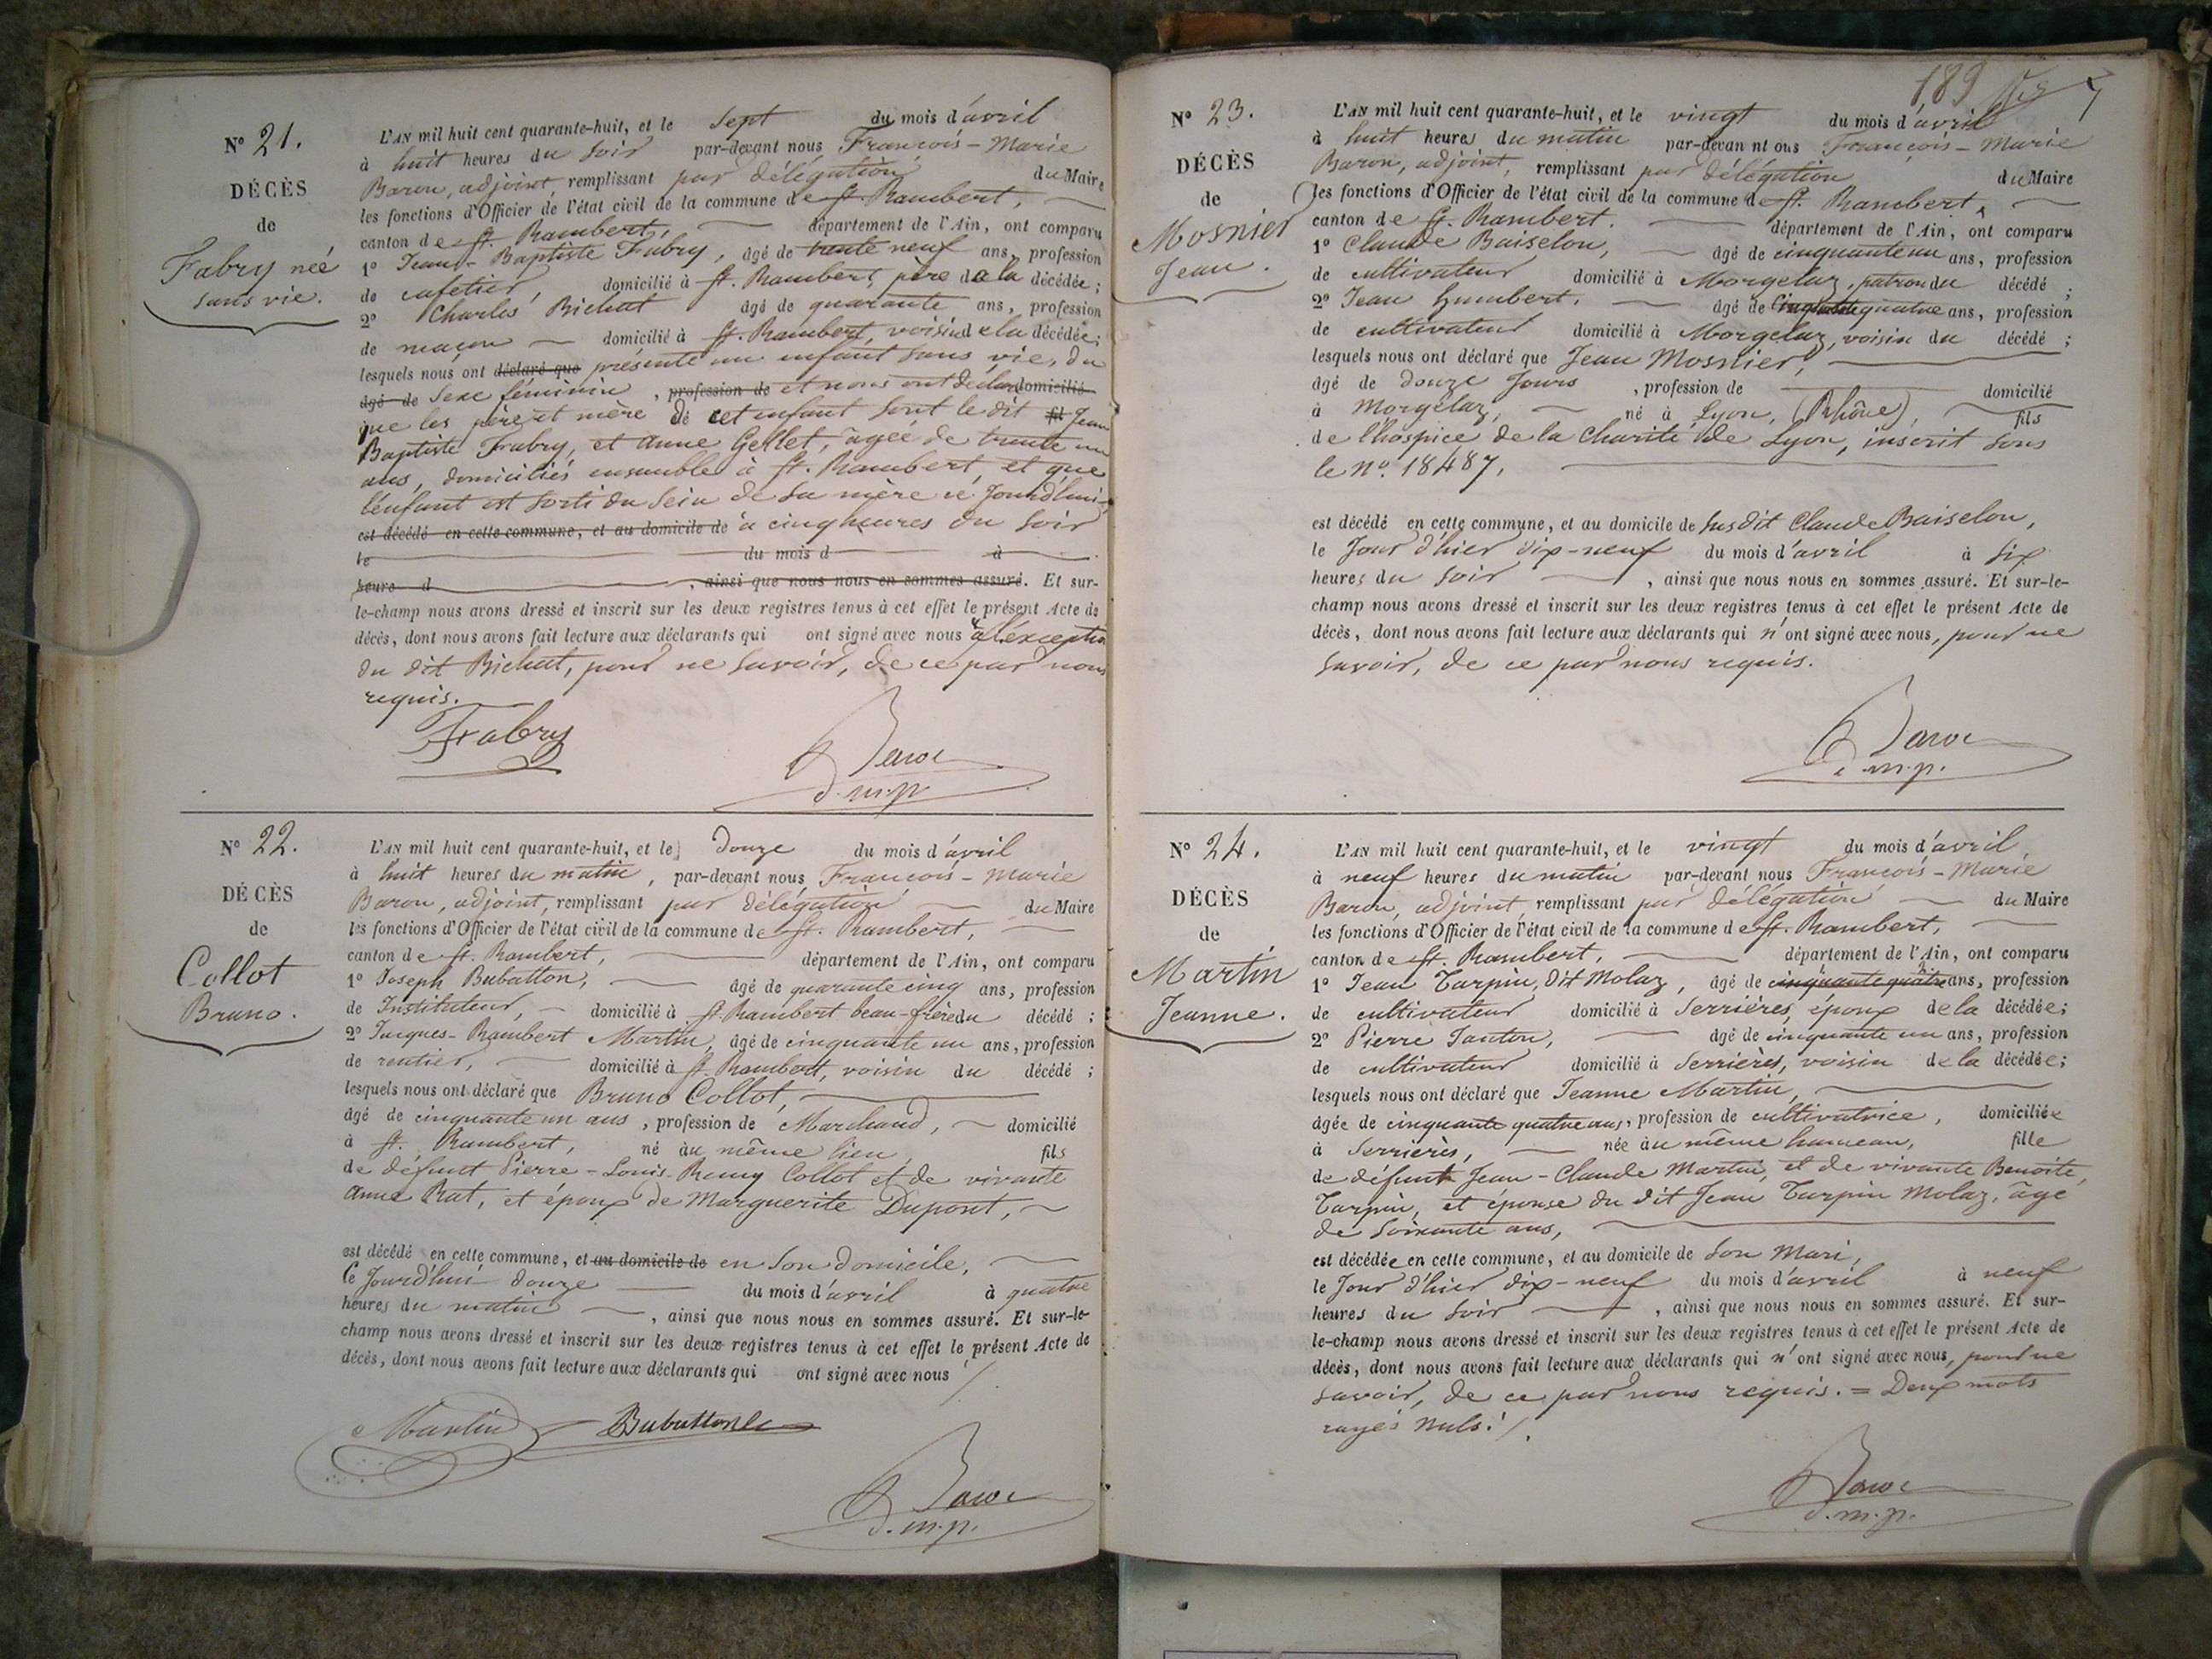 N° 21.
DÉCÈS
de
Fabry née
sans vie.
L'AN mil huit cent quarante-huit, et le sept du mois d'avril
à huit heures du soir par-devant nous François-Marie
Baron, adjoint, remplissant par délégation du Maire
les fonctions d'Officier de l'état civil de la commune de St. Rambert,
canton de St. Rambert, département de l'Ain, ont comparu
1° Jean-Baptiste Fabry, âgé de trente neuf ans, profession
de cafetier, domicilié à St. Rambert, père de la décédée;
2° Charles Bichat âgé de quarante ans, profession
de maçon domicilié à St. Rambert, voisin de la décédée;
lesquels nous ont déclaré que présenté un enfant sans vie, du
âgé de sexe féminin, profession de et nous ont déclaré domicilié
que les père et mère de cet enfant sont le dit Jean
Baptiste Fabry, et Anne Gellet, âgée de trente un
ans, domiciliés ensemble à St. Rambert, et que
l'enfant est sorti du sein de sa mère ce jourd'hui
est décédé en cette commune, et au domicile de à cinq heures du soir
le du mois d à
heure d , ainsi que nous nous en sommes assuré. Et sur-
le-champ nous avons dressé et inscrit sur les deux registres tenus à cet effet le présent Acte de
décès, dont nous avons fait lecture aux déclarants qui ont signé avec nous à l'exception
du dit Bichat, pour ne savoir, de ce par nous
requis.
Fabry
Baron
d. m. p.
N° 22.
DÉCÈS
de
Collot
Bruno.
L'AN mil huit cent quarante-huit, et le douze du mois d'avril
à huit heures du matin, par-devant nous François-Marie
Baron, adjoint, remplissant par délégation du Maire
les fonctions d'Officier de l'état civil de la commune de St. Rambert,
canton de St. Rambert, département de l'Ain, ont comparu
1° Joseph Bubatton, âgé de quarante cinq ans, profession
de Instituteur, domicilié à St. Rambert beau-frère du décédé;
2° Jacques-Rambert Martin, âgé de cinquante un ans, profession
de rentier, domicilié à St. Rambert, voisin du décédé;
lesquels nous ont déclaré que Bruno Collot,
âgé de cinquante un ans, profession de Marchand, domicilié
à St. Rambert, né au même lieu, fils
de défunt Pierre-Louis-Remy Collot et de vivante
Anne Rat, et époux de Marguerite Dupont,
est décédé en cette commune, et au domicile de en son domicile,
ce jourd'hui douze du mois d'avril à quatre
heures du matin, ainsi que nous nous en sommes assuré. Et sur-le-
champ nous avons dressé et inscrit sur les deux registres tenus à cet effet le présent Acte de
décès, dont nous avons fait lecture aux déclarants qui ont signé avec nous
Martin Bubatton
Baron
d. m. p.
189
N° 23.
DÉCÈS
de
Mosnier
Jean.
L'AN mil huit cent quarante-huit, et le vingt du mois d'avril
à huit heures du matin par-devan nt ous François-Marie
Baron, adjoint, remplissant par délégation du Maire
les fonctions d'Officier de l'état civil de la commune de St. Rambert,
canton de St. Rambert. département de l'Ain, ont comparu
1° Claude Baiselon, âgé de cinquante un ans, profession
de cultivateur domicilié à Morgelaz, patron du décédé;
2° Jean Humbert, âgé de cinquante quatre ans, profession
de cultivateur domicilié à Morgelaz, voisin du décédé;
lesquels nous ont déclaré que Jean Mosnier,
âgé de douze jours, profession de domicilié
à Morgelaz, né à Lyon, (Rhône), fils
de l'hospice de la Charité de Lyon, inscrit sous
le N° 18487,
est décédé en cette commune, et au domicile de susdit Claude Baiselon,
le Jour d'hier dix-neuf du mois d'avril à six
heures du soir, ainsi que nous nous en sommes assuré. Et sur-le-
champ nous avons dressé et inscrit sur les deux registres tenus à cet effet le présent Acte de
décès, dont nous avons fait lecture aux déclarants qui n'ont signé avec nous, pour ne
savoir, de ce par nous requis.
Baron
d. m. p.
N° 24.
DÉCÈS
de
Martin
Jeanne.
L'AN mil huit cent quarante-huit, et le vingt du mois d'avril
à neuf heures du matin par-devant nous François-Marie
Baron, adjoint, remplissant par délégation du Maire
les fonctions d'Officier de l'état civil de la commune de St. Rambert,
canton de St. Rambert, département de l'Ain, ont comparu
1° Jean Turpin, dit Molaz, âgé de cinquante quatre ans, profession
de cultivateur domicilié à Serrières, époux de la décédée;
2° Pierre Tanton, âgé de cinquante un ans, profession
de cultivateur domicilié à Serrières, voisin de la décédée;
lesquels nous ont déclaré que Jeanne Martin,
âgée de cinquante quatre ans, profession de cultivatrice, domiciliée
à Serrières, née au même hameau, fille
de défunt Jean-Claude Martin, et de vivante Benoîte
Turpin, et épouse du dit Jean Turpin Molaz, âgé
de soixante ans,
est décédée en cette commune, et au domicile de son mari,
le Jour d'hier dix-neuf du mois d'avril à neuf
heures du soir, ainsi que nous nous en sommes assuré. Et sur-
le-champ nous avons dressé et inscrit sur les deux registres tenus à cet effet le présent Acte de
décès, dont nous avons fait lecture aux déclarants qui n'ont signé avec nous, pour ne
savoir, de ce par nous requis. = Deux mots
rayés nuls./.
Baron
d. m. p.